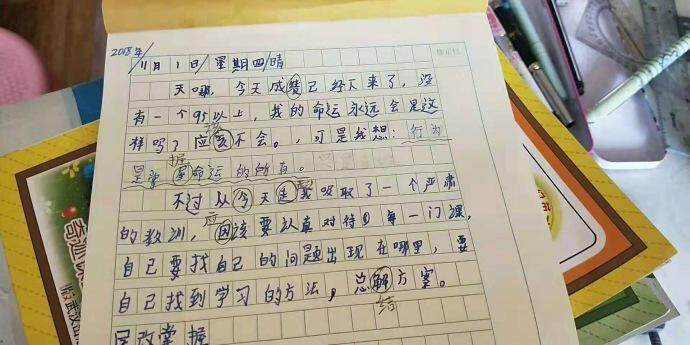 2018年
11月1日/星期四/晴
天哪,今天成绩已经下来了,没
有一个95以上,我的命运永远会是这
样吗?应该不会。可是我想:行为
是掌握命运的
不过从今天起我吸取了一个严肃
的教训,应该要认真对待每一门课,
自己要找自己的问题出现在哪里,要
自己找到学习的方法,总结方案。
掌握